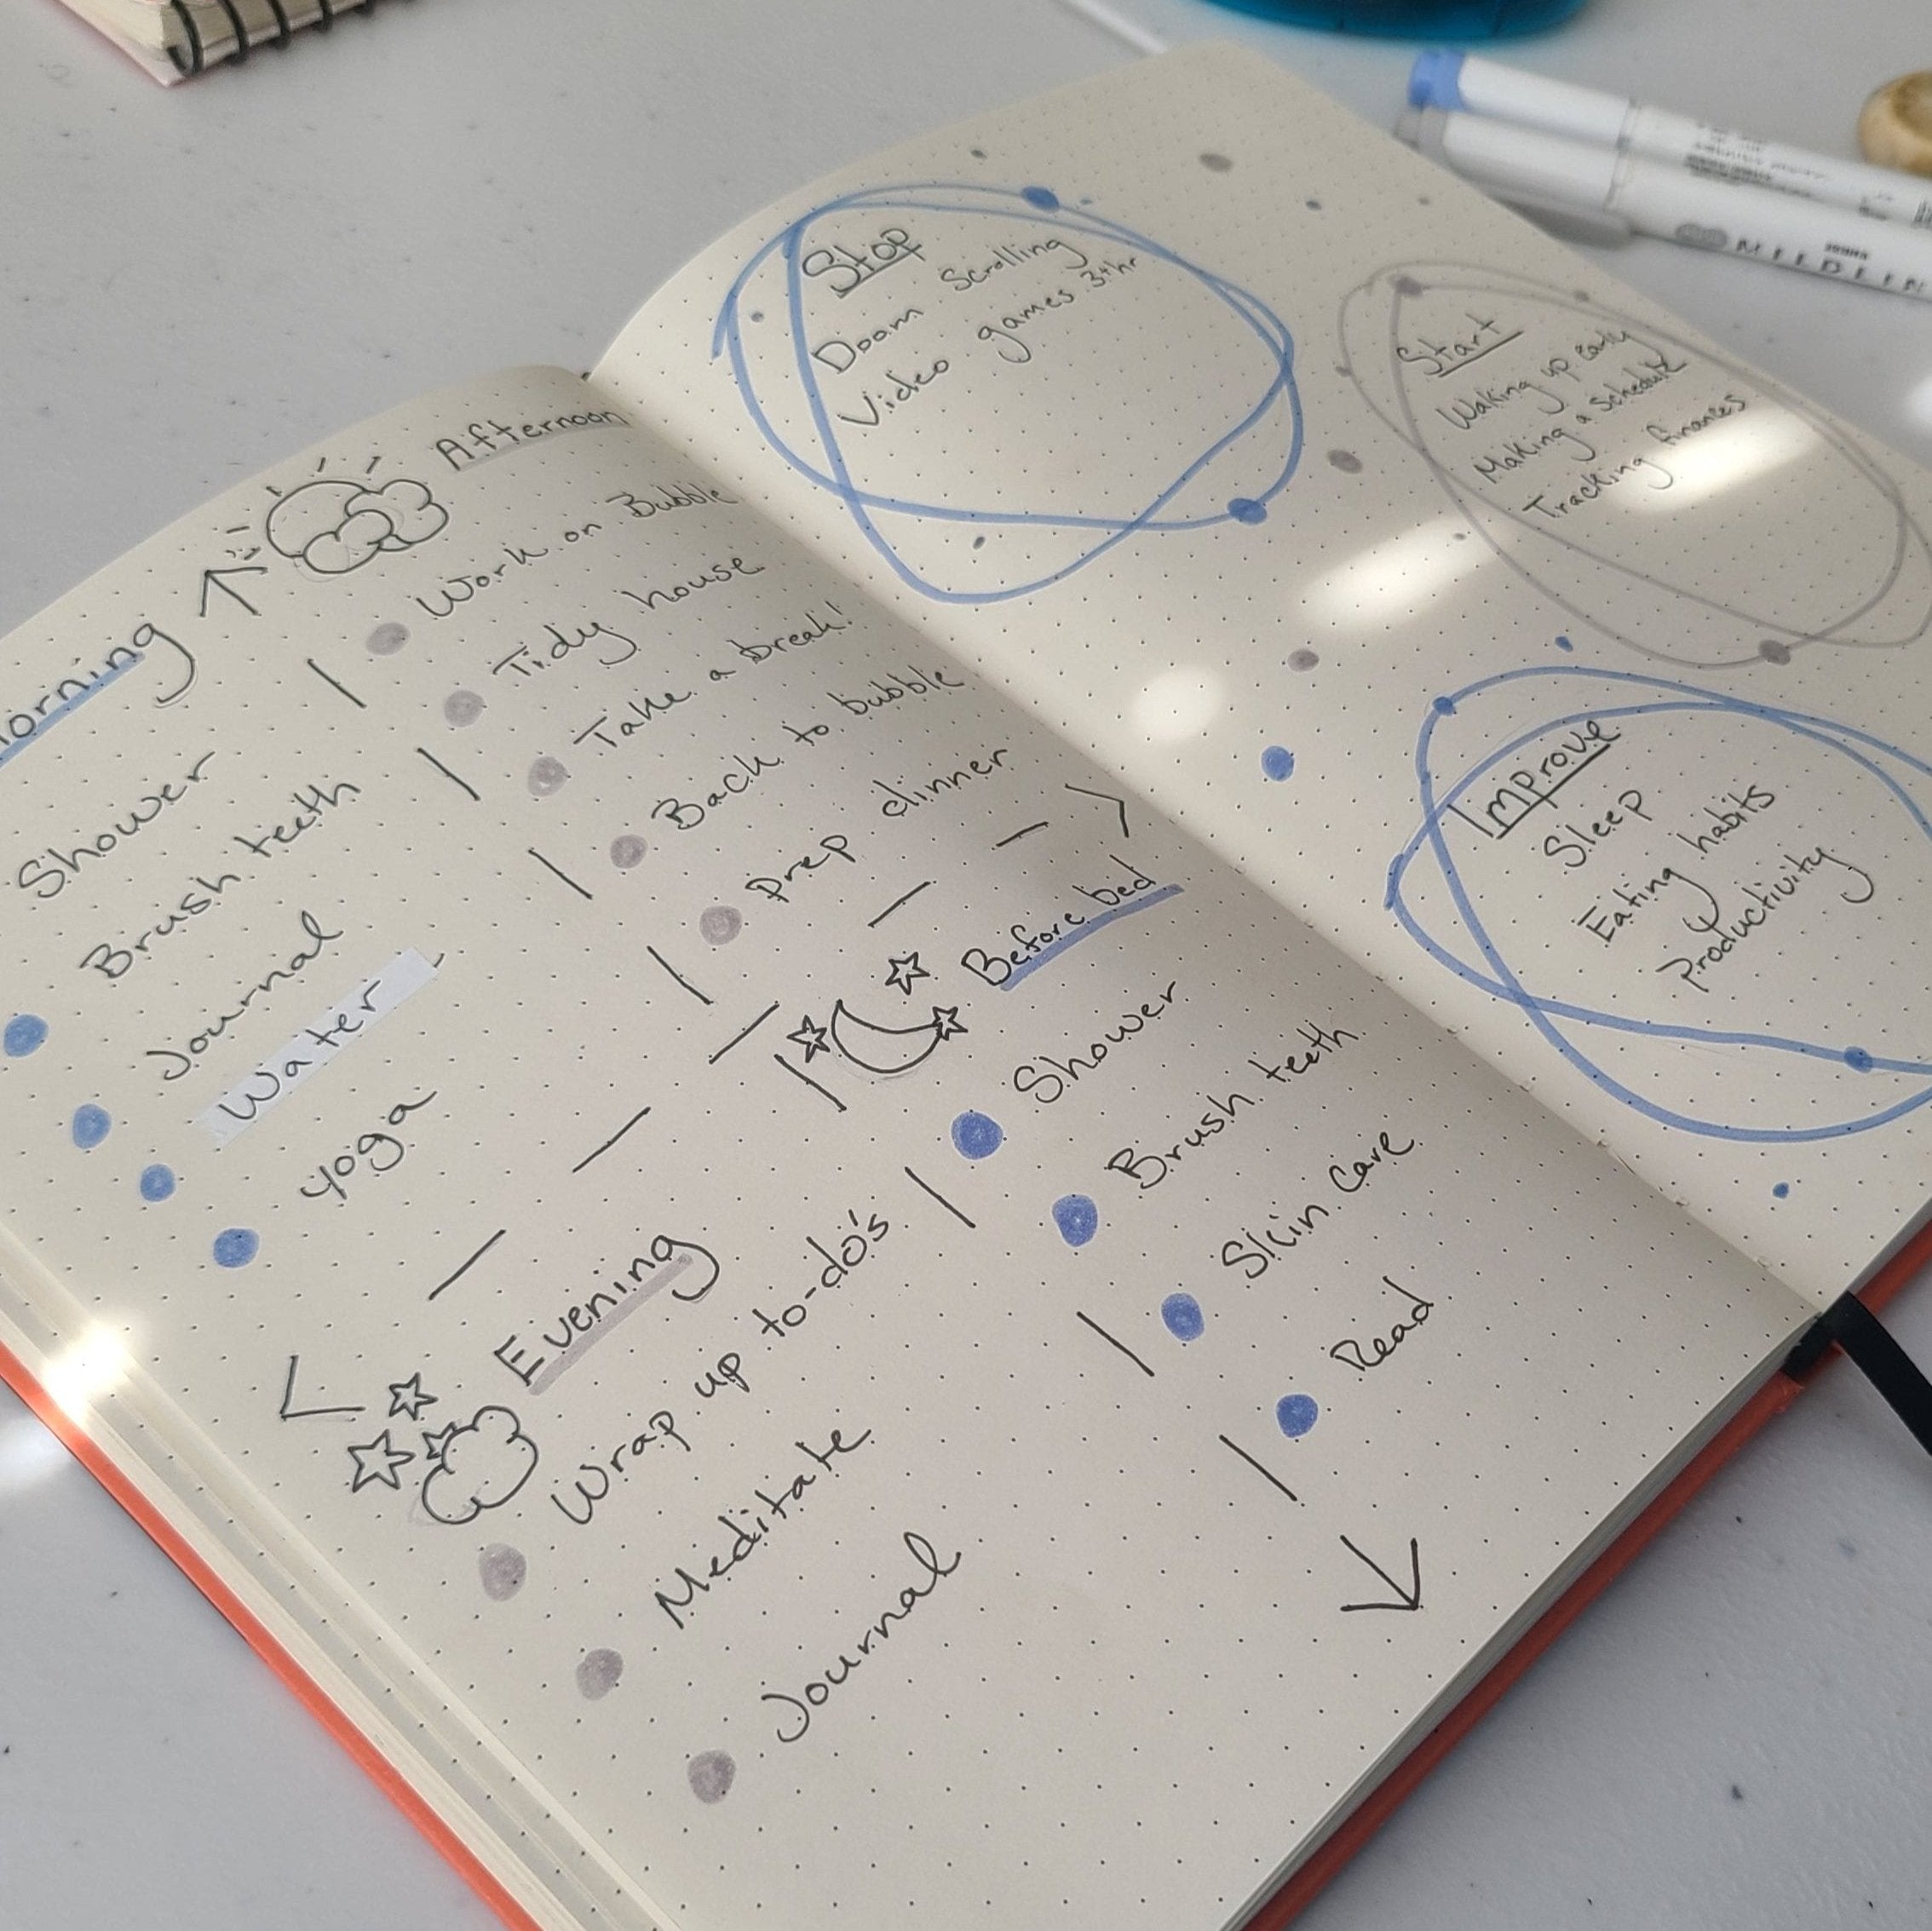 orning
Shower
Brush teeth
Journal
Water
yoga
Afternoon
Work on Bubble
Tidy house
Take a break!
Back to bubble
Prep dinner
Evening
Wrap up to-do's
Meditate
Journal
Before bed
Shower
Brush teeth
Skin Care
Read
Stop
Doom Scrolling
Video games 3+hr
Start
Waking up early
Making a schedule
Tracking finances
Improve
Sleep
Eating habits
Productivity